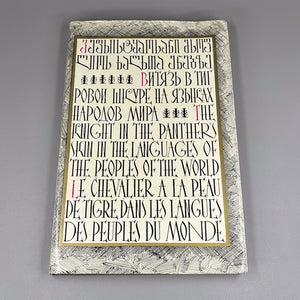 ვეფხისტყაოსანი მსოფ
ლიოს ხალხთა ენებზე
ВИТЯЗЬ В ТИГ
РОВОЙ ШКУРЕ НА ЯЗЫКАХ
НАРОДОВ МИРА T
HE KNIGHT IN THE PANTHER'S
SKIN IN THE LANGUAGES OF
THE PEOPLES OF THE WORLD
LE CHEVALIER A LA PEAU
DE TIGRE DANS LES LANGUES
DES PEUPLES DU MONDE